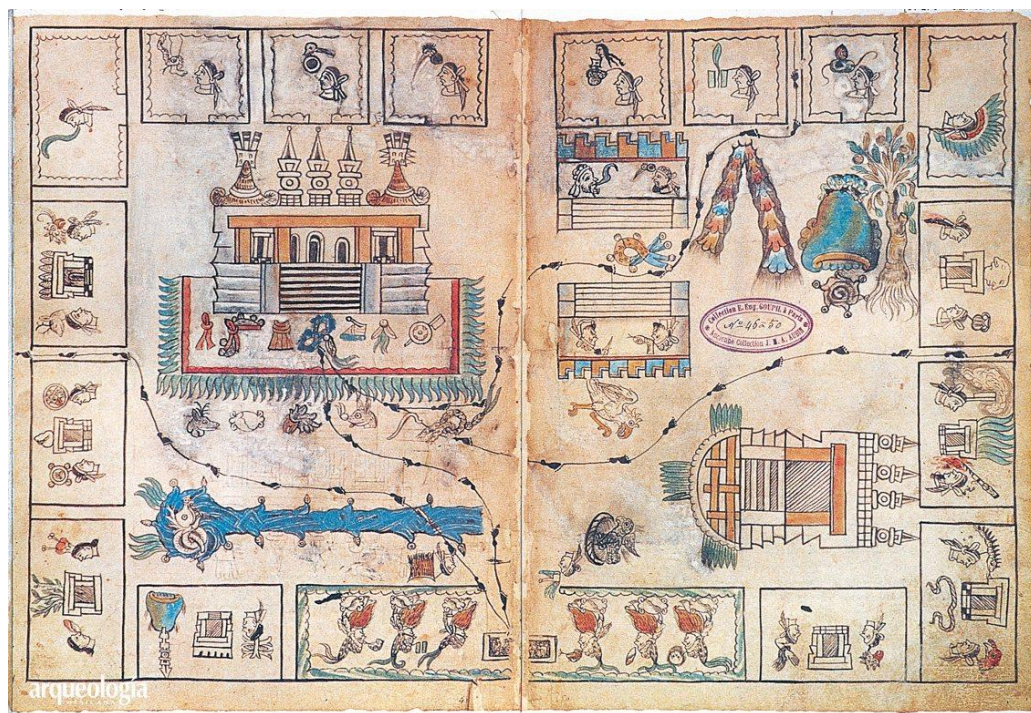 Collection E. Eug. GOUPIL à Paris
Nº 46 à 50
Ancienne Collection J. M. A. Aubin
arqueología